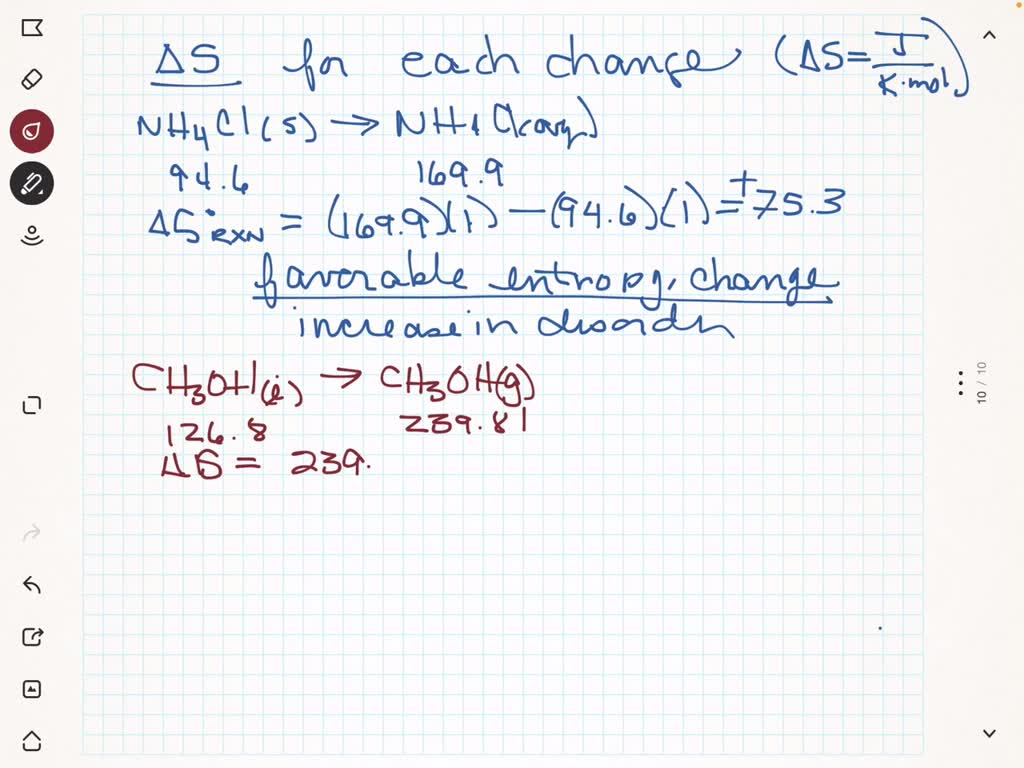 ΔS for each change (ΔS = J/K·mol)
NH4Cl(s) → NH4Cl(aq)
94.6 169.9
ΔS°RXN = (169.9)(1) - (94.6)(1) = +75.3
favorable entropy change
increase in disorder
CH3OH(l) → CH3OH(g)
126.8 239.81
ΔS = 239.
10 / 10